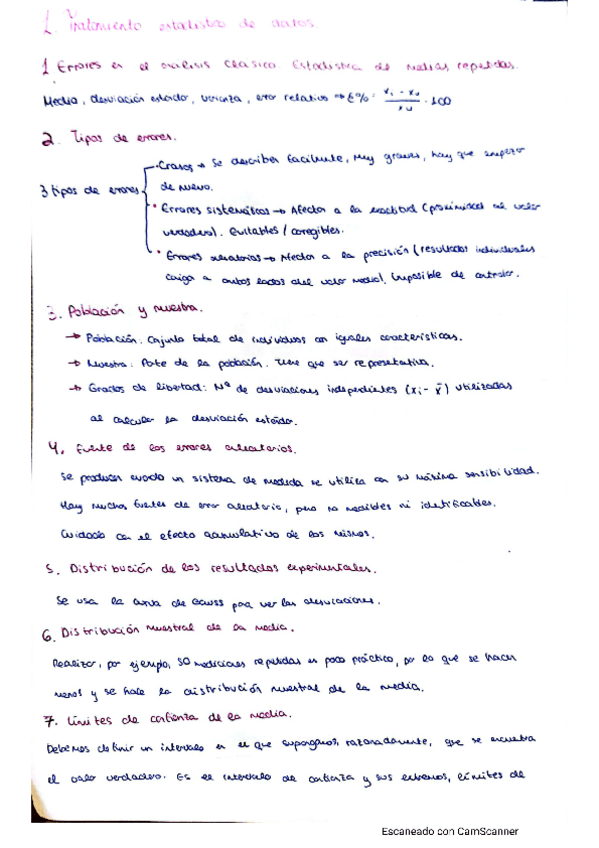 1. Tratamiento estadístico de datos.
1 Errores en el análisis clásico Estadística de medias repetidas.
Media, desviación estandar, varianza, error relativo → E% = (xi - xu / xu) · 100
2. Tipos de errores.
3 tipos de errores
• Crasos → Se describen facilmente, Muy graves, hay que empezar
de nuevo.
• Errores sistemáticos → Afectan a la exactitud (proximidad al valor
verdadero). Evitables / corregibles.
• Errores aleatorios → Afectan a la precisión (resultados individuales
caiga a ambos lados del valor medio). Imposible de controlar.
3. Población y muestra.
→ Población. Conjunto total de individuos con iguales características.
→ Muestra: Parte de la población. Tiene que ser representativa.
→ Grados de libertad: Nº de desviaciones independientes (xi - x̄) utilizadas
al calcular la desviación estándar.
4. Fuente de los errores aleatorios.
Se producen cuando un sistema de medida se utiliza con su máxima sensibilidad.
Hay muchas fuentes de error aleatorio, pero no medibles ni identificables.
Cuidado con el efecto acumulativo de los mismos.
5. Distribución de los resultados experimentales.
Se usa la curva de Gauss para ver las desviaciones.
6. Distribución muestral de la media.
Realizar, por ejemplo, 50 mediciones repetidas es poco práctico, por lo que se hacen
menos y se hace la distribución muestral de la media.
7. Límites de confianza de la media.
Debemos definir un intervalo en el que supongamos, razonadamente, que se encuentra
el valor verdadero. Es el intervalo de confianza y sus extremos, límites de
Escaneado con CamScanner